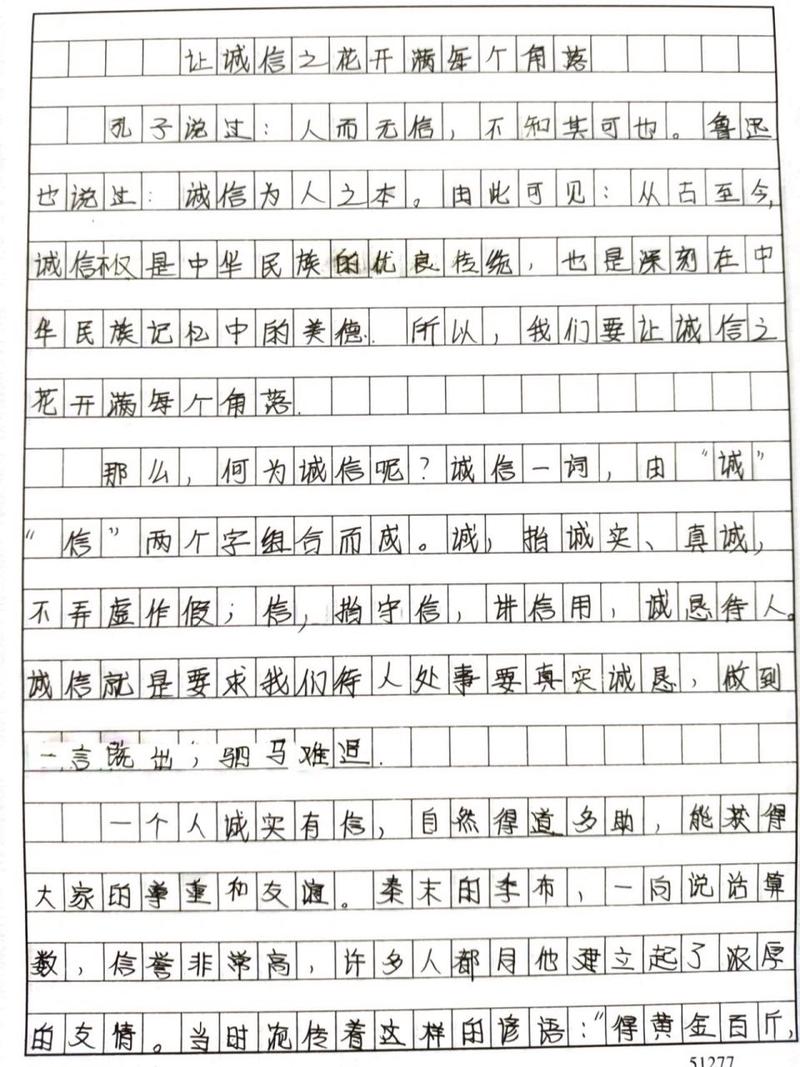 让诚信之花开满每个角落
孔子说过：人而无信，不知其可也。鲁迅
也说过：诚信为人之本。由此可见：从古至今，
诚信不仅是中华民族的优良传统，也是深刻在中
华民族记忆中的美德．所以，我们要让诚信之
花开满每个角落．
那么，何为诚信呢？诚信一词，由“诚”
“信”两个字组合而成。诚，指诚实、真诚，
不弄虚作假；信，指守信，讲信用，诚恳待人。
诚信就是要求我们待人处事要真实诚恳，做到
一言既出，驷马难追．
一个人诚实有信，自然得道多助，能获得
大家的尊重和友谊。秦末的季布，一向说话算
数，信誉非常高，许多人都月他建立起了浓厚
的友情。当时流传着这样的谚语：“得黄金百斤，
51277